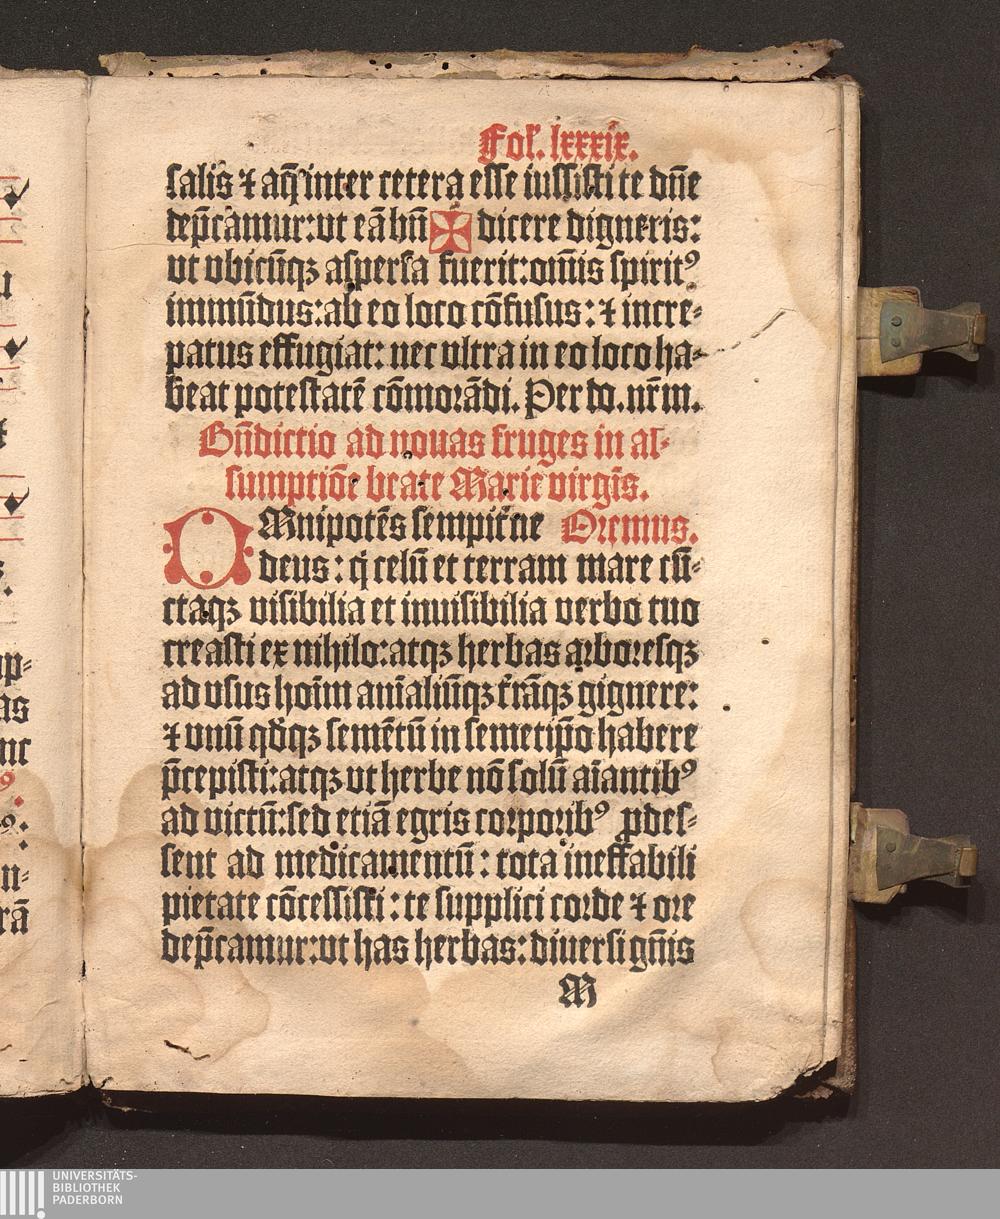 Fol. lxxxix.
salis ⁊ aq̄ inter cetera esse iussisti te dn̄e
dep̄camur: vt eā bn̄ ✠ dicere digneris:
vt vbicūqꝫ aspersa fuerit: om̄is spiritꝰ
immūdus: ab eo loco cōfusus: ⁊ incre⸗
patus effugiat: nec vltra in eo loco ha⸗
beat potestatē cōmorādi. Per do. nr̄m.
Bn̄dictio ad nouas fruges in as⸗
sumptiōe beate Marie virgīs.
OMnipotēs sempit̄ne Oremus.
deus: q̇ celū et terram mare cū⸗
ctaqꝫ visibilia et inuisibilia verbo tuo
creasti ex nihilo: atqꝫ herbas arboresqꝫ
ad vsus hoīm anīaliūqꝫ t̄rāqꝫ gignere:
⁊ vnū qd̄qꝫ semētū in semetip̄o habere
p̄cepisti: atqꝫ vt herbe nō solū aīantibꝰ
ad victū: sed etiā egris corporibꝰ ꝓdes⸗
sent ad medicamentū: tota ineffabili
pietate cōcessisti: te supplici corde ⁊ ore
dep̄camur: vt has herbas: diuersi gn̄is
M
u
x
p⸗
as
nc
n⸗
rā
UNIVERSITÄTS-
BIBLIOTHEK
PADERBORN